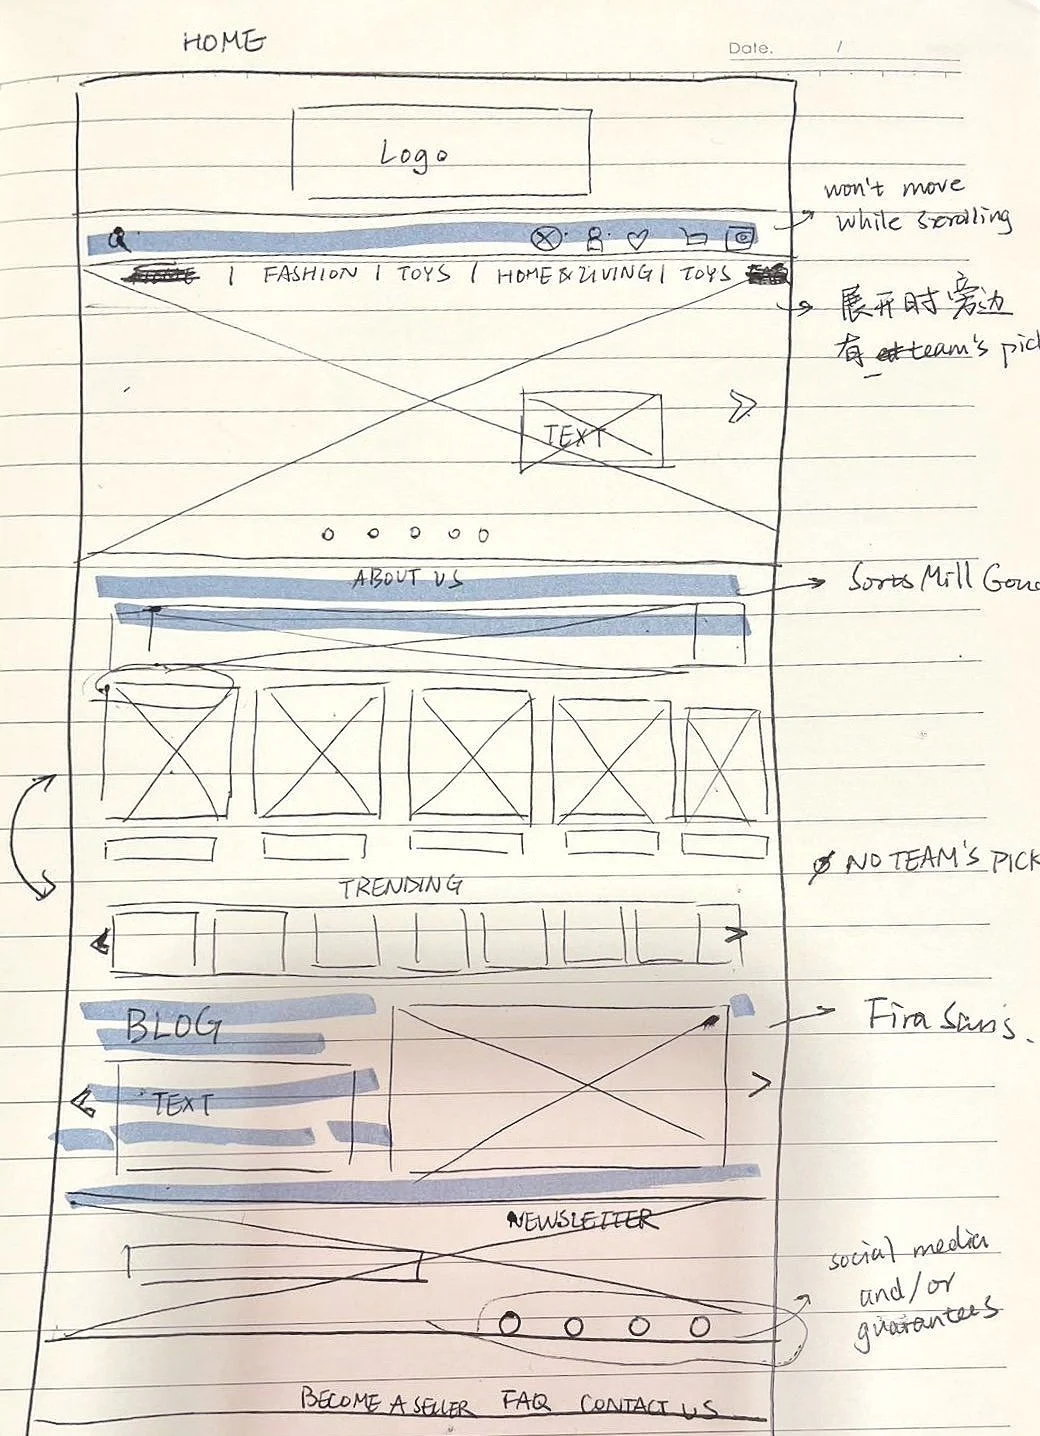 HOME
Date. /
Logo
won't move
while scrolling
| FASHION | TOYS | HOME & LIVING | TOYS
展开时旁边
有 team's pick
TEXT
ABOUT US
Sorts Mill Gou
NO TEAM'S PICK
TRENDING
BLOG
Fira Sans.
TEXT
NEWSLETTER
social media
and/or
guarantees
BECOME A SELLER FAQ CONTACT US